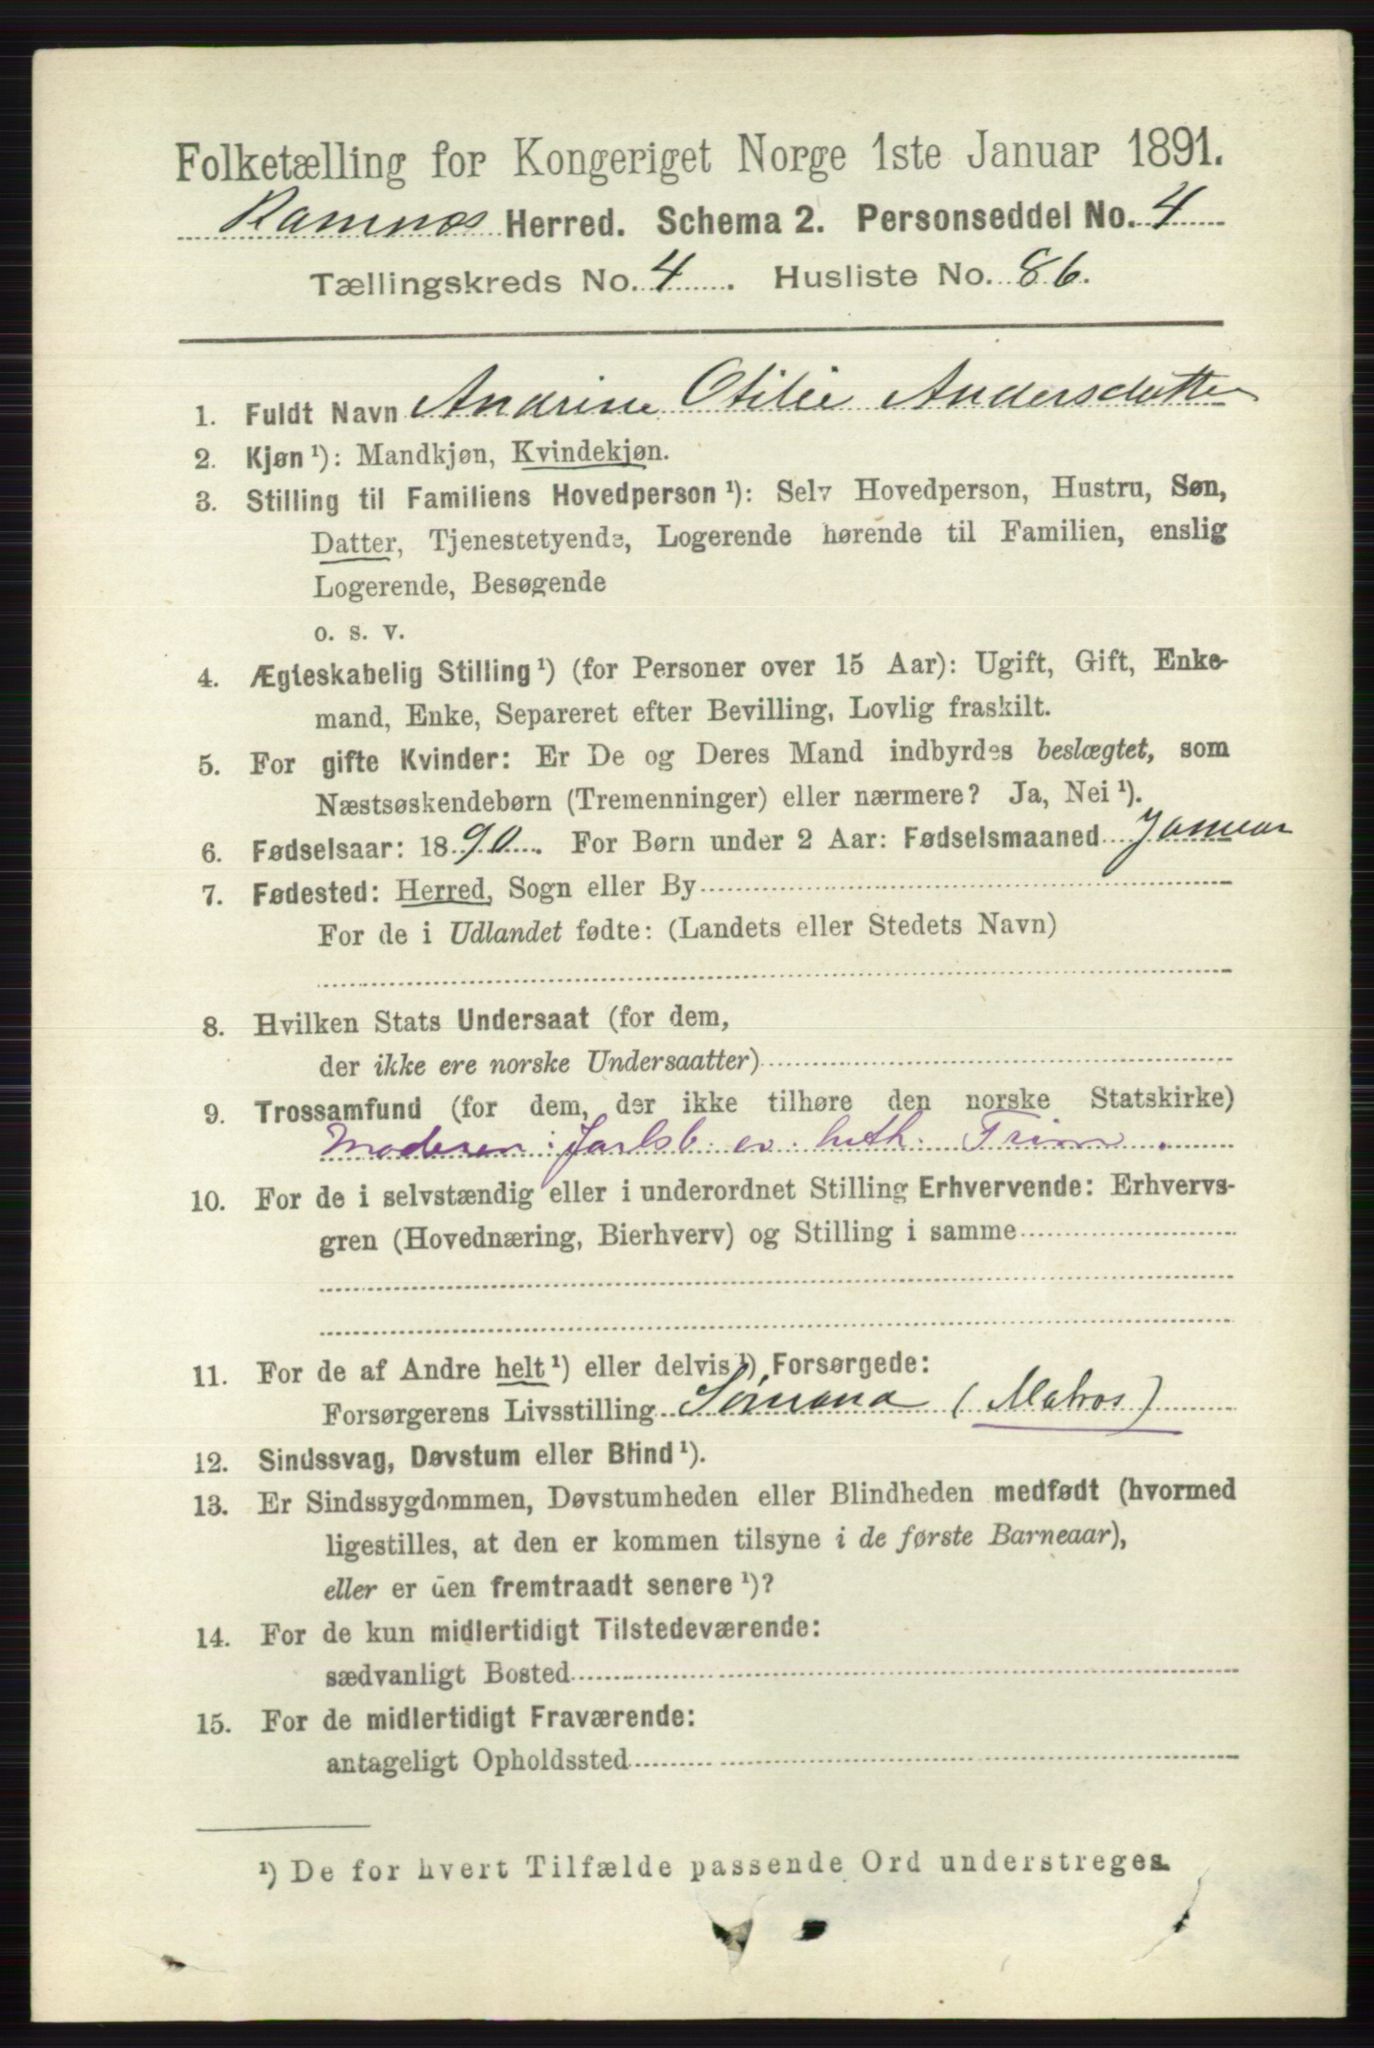 Folketælling for Kongeriget Norge 1ste Januar 1891.
Ramnes Herred. Schema 2. Personseddel No. 4
Tællingskreds No. 4. Husliste No. 86.
1. Fuldt Navn Andrine Otilie Andersdatter
2. Kjøn¹): Mandkjøn, Kvindekjøn.
3. Stilling til Familiens Hovedperson¹): Selv Hovedperson, Hustru, Søn,
Datter, Tjenestetyende, Logerende hørende til Familien, enslig
Logerende, Besøgende
o. s. v.
4. Ægteskabelig Stilling¹) (for Personer over 15 Aar): Ugift, Gift, Enke-
mand, Enke, Separeret efter Bevilling, Lovlig fraskilt.
5. For gifte Kvinder: Er De og Deres Mand indbyrdes beslægtet, som
Næstsøskendebørn (Tremenninger) eller nærmere? Ja, Nei¹).
6. Fødselsaar: 1890. For Børn under 2 Aar: Fødselsmaaned Januar
7. Fødested: Herred, Sogn eller By
For de i Udlandet fødte: (Landets eller Stedets Navn)
8. Hvilken Stats Undersaat (for dem,
der ikke ere norske Undersaatter)
9. Trossamfund (for dem, der ikke tilhøre den norske Statskirke)
Moderen: Jarlsb. ev. luth. Frim.
10. For de i selvstændig eller i underordnet Stilling Erhvervende: Erhvervs-
gren (Hovednæring, Bierhverv) og Stilling i samme
11. For de af Andre helt¹) eller delvis¹) Forsørgede:
Forsørgerens Livsstilling Sømand (Matros)
12. Sindssvag, Døvstum eller Blind¹).
13. Er Sindssygdommen, Døvstumheden eller Blindheden medfødt (hvormed
ligestilles, at den er kommen tilsyne i de første Barneaar),
eller er den fremtraadt senere¹)?
14. For de kun midlertidigt Tilstedeværende:
sædvanligt Bosted
15. For de midlertidigt Fraværende:
antageligt Opholdssted
¹) De for hvert Tilfælde passende Ord understreges.